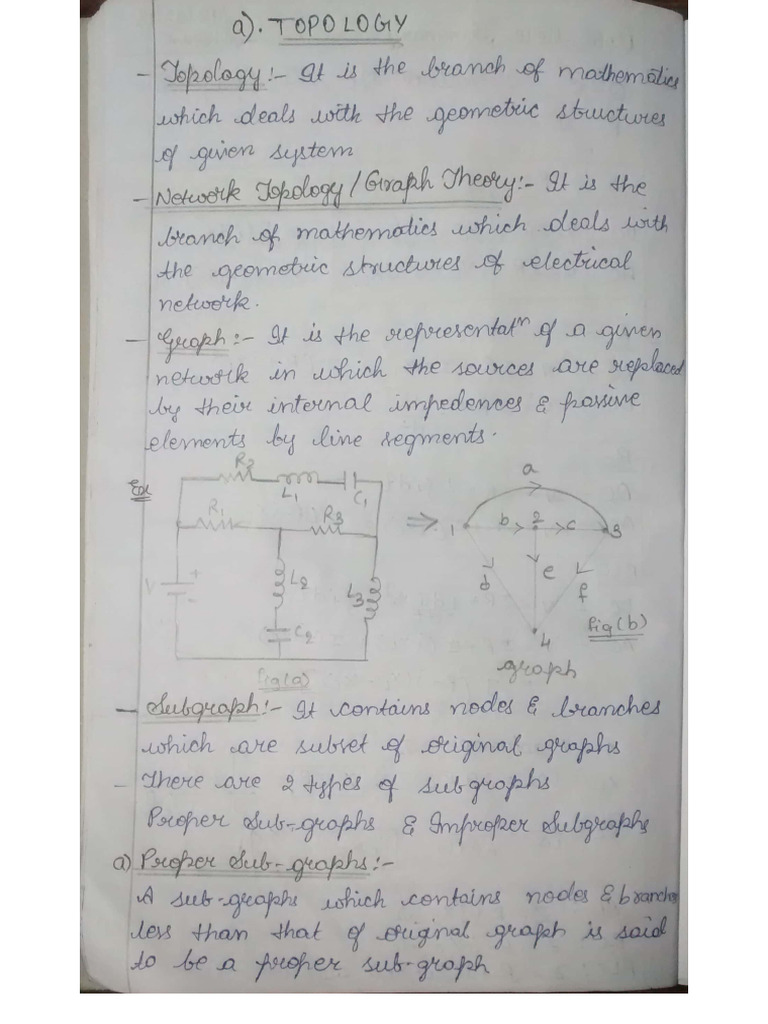 a). TOPOLOGY
- Topology:- It is the branch of mathematics
which deals with the geometric structures
of given system
- Network Topology/Graph Theory:- It is the
branch of mathematics which deals with
the geometric structures of electrical
network.
- Graph:- It is the representatⁿ of a given
network in which the sources are replaced
by their internal impedences & passive
elements by line segments.
Ex
R2
L1
C1
R1
R3
V
+
-
L2
C2
L3
fig(a)
⇒
a
1
b
2
c
3
d
e
f
4
graph
fig(b)
- Subgraph:- It contains nodes & branches
which are subset of original graphs
- There are 2 types of subgraphs
Proper Sub-graphs & Improper Subgraphs
a) Proper Sub-graphs:-
A sub-graphs which contains nodes & branches
less than that of original graph is said
to be a proper sub-graph